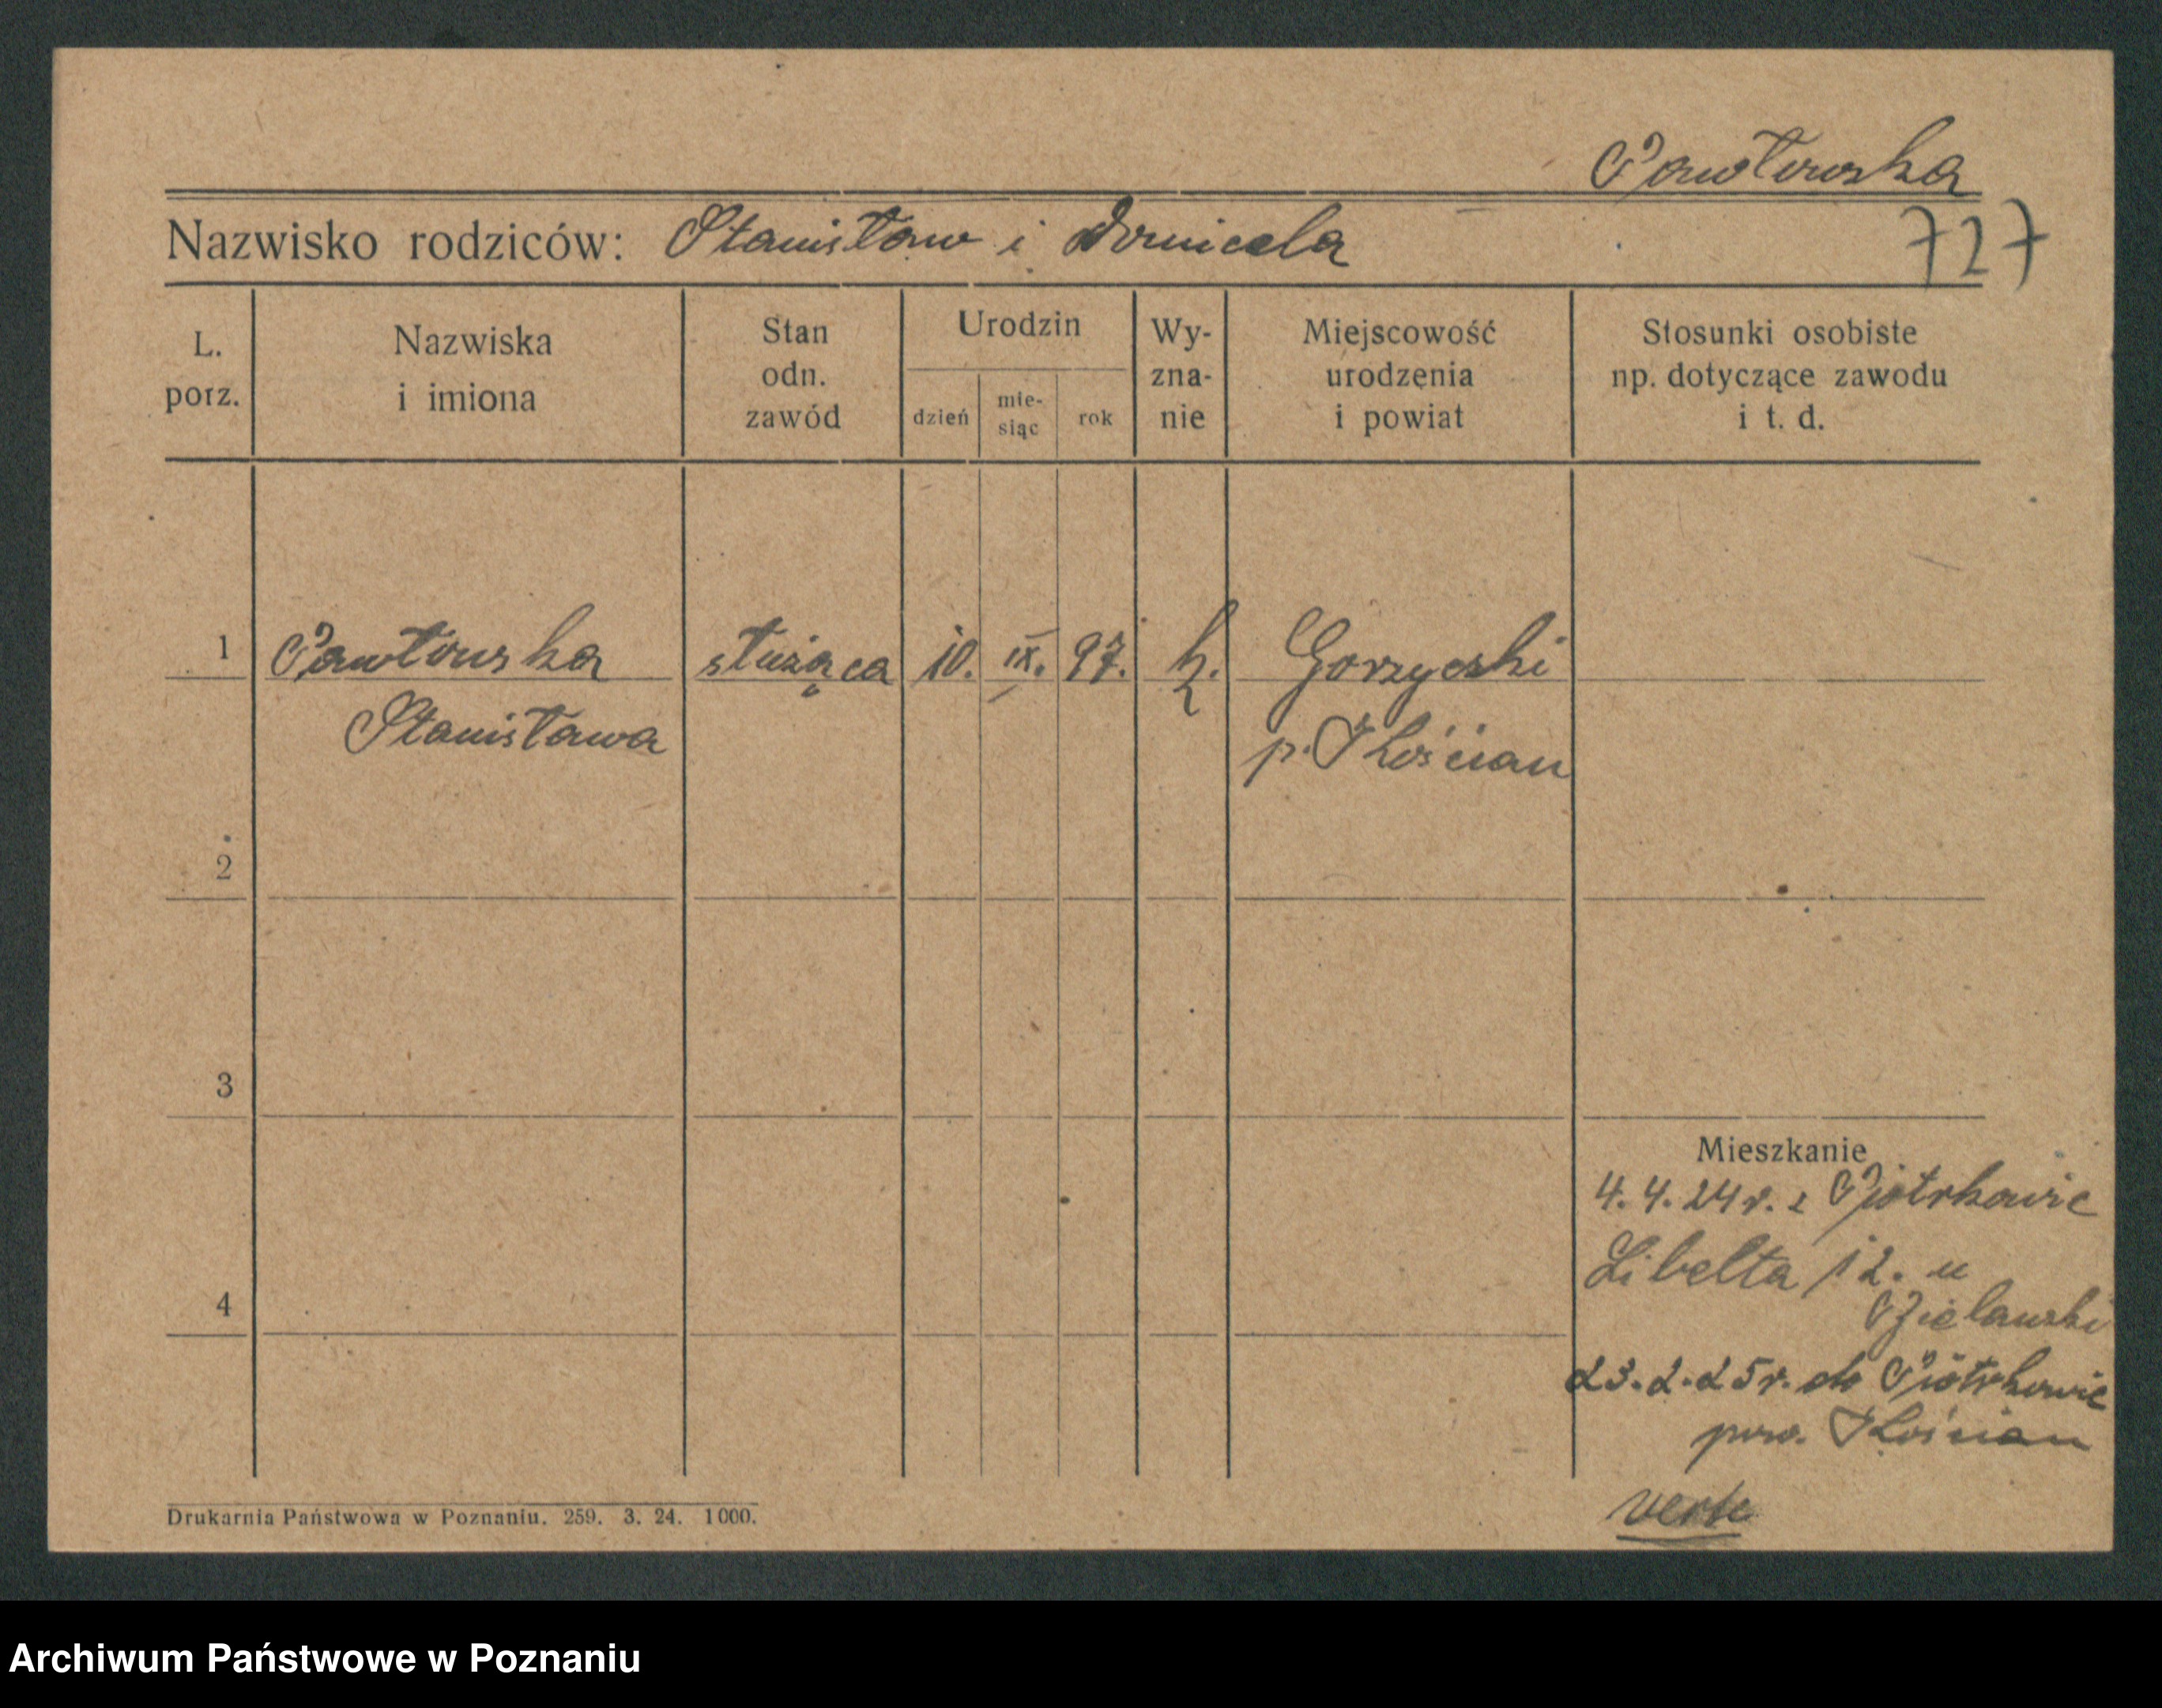 Pawłowska
Nazwisko rodziców: Stanisław i
727
L. porz.
Nazwiska i imiona
Stan odn. zawód
Urodzin
dzień
mie-siąc
rok
Wy-zna-nie
Miejscowość urodzenia i powiat
Stosunki osobiste np. dotyczące zawodu i t. d.
1 Pawłowska służąca 10. IX. 97. k. Gorzyczki
Stanisława p. Kościan
2
3
Mieszkanie
4. 4. 24 r. z Piotrkowic
Libelta 12. u
4
23. 2. 25 r. do Piotrkowic
pow. Kościan
verte
Drukarnia Państwowa w Poznaniu. 259. 3. 24. 1000.
Archiwum Państwowe w Poznaniu